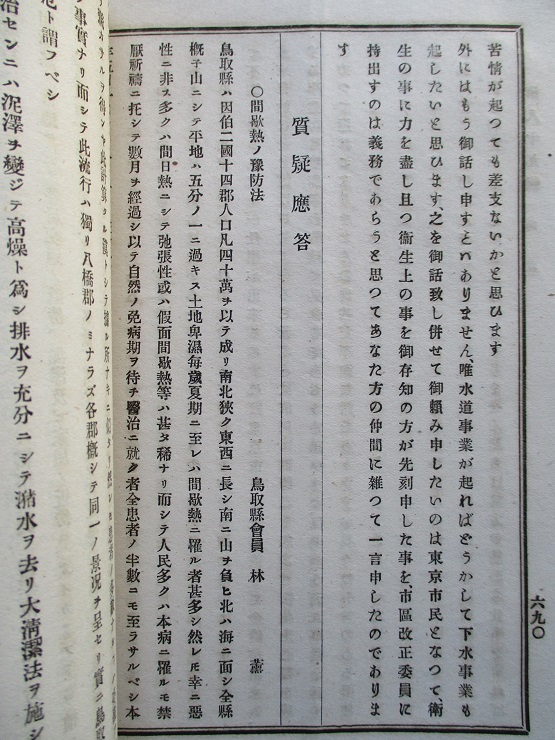 六九〇
苦情が起つても差支ないかと思ひます
外にはもう御話し申すとハありません、唯水道事業が起ればどうかして下水事業も
起したいと思ひます、之を御話致し併せて御頼み申したいのは東京市民となつて、衛
生の事に力を盡し且つ衞生上の事を御存知の方が先刻申した事を、市區改正委員に
持出すのは義務であらうと思つてあなた方の仲間に雜つて一言申したのでありま
す
質疑應答
〇間歇熱ノ豫防法
鳥取縣會員 林 薫
鳥取縣ハ因伯二國十四郡人口凡四十萬ヲ以テ成リ南北狹ク東西ニ長シ南ニ山ヲ負ヒ北ハ海ニ面シ全縣
概子山ニシテ平地ハ五分ノ一ニ過キス土地卑濕毎歲夏期ニ至レハ間歇熱ニ罹ル者甚多シ然レ𪜈幸ニ惡
性ニ非ス多クハ間日熱ニシテ弛張性或ハ假面間歇熱等ハ甚タ稀ナリ而シテ人民多クハ本病ニ罹ルモ禁
厭祈禱ニ托シテ數月ヲ經過シ以テ自然ノ免病期ヲ待チ醫治ニ就ク者全患者ノ半數ニモ至ラサルベシ本
事實ナリ而シテ此流行ハ獨リ八橋郡ノミナラズ各郡概シテ同一ノ景況ヲ呈セリ實ニ鳥取
ト謂フベシ
治センニハ泥澤ヲ變ジテ高燥ト爲シ排水ヲ充分ニシテ瀦水ヲ去リ大清潔法ヲ施シ